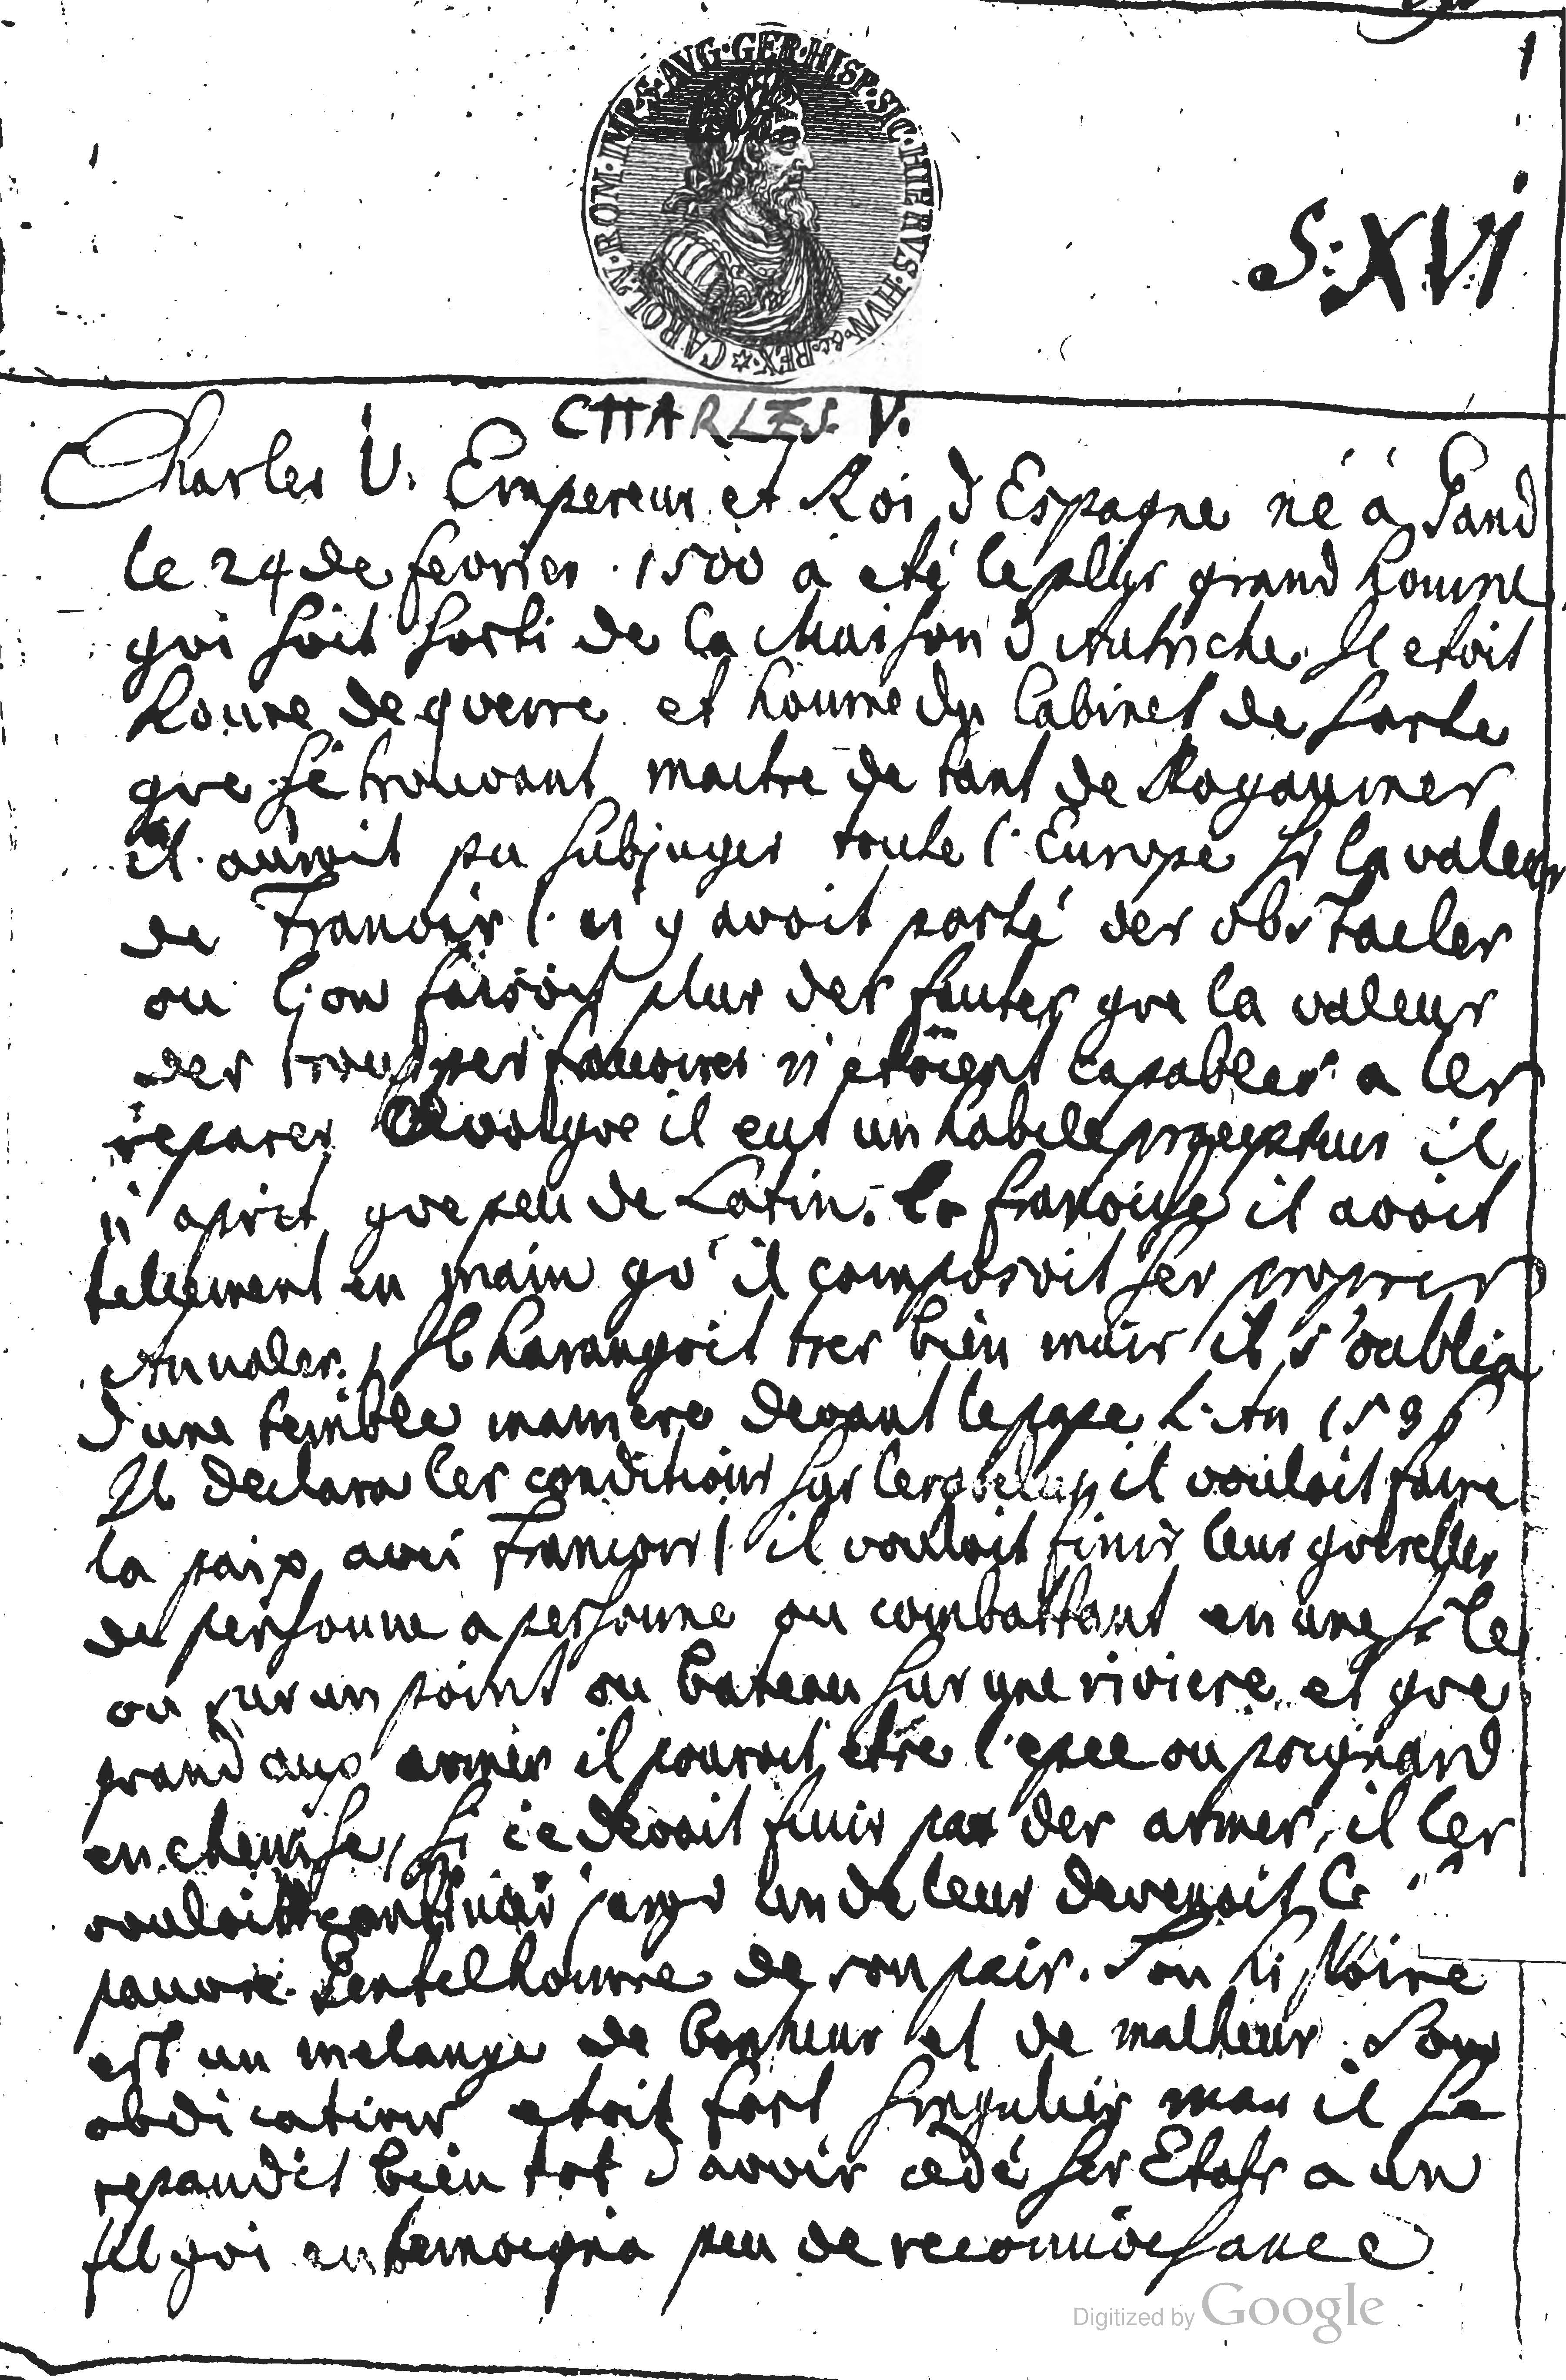 1
CAROL·V·ROM·IMP·S·AVG·GER·HISP·SIC·HIERVS·HVN·&c·REX·
S: XVI
CHARLES. V.
Charles V. Empereur et Roi d'Espagne né á Gand
le 24 de fevrier 1500 a eté le plus grand home
qui soit sorti de la Maison d'Autriche. Il etoit
home de guerre et home du Cabinet de sorte
que se trouvant maitre de tant de Royaumes
il auroit pu subjuger toute l'Europe si la valeur
de Francois I. n'y avoit porté des obstacles
ou l'on faisoit plus des fautes que la valeur
des trouppes n'etoient capables a les
reparer. Quoique il eut un habile precepteur il
n'aprit que peu de Latin. la francoise il avoit
tellement en main qu'il composoit ses propres
Annales. Il harangoit tres bien mais il s'oublia
d'une terrible maniere devant le pape L'An 1536
Il declara les conditions sur lesquelles il vouloit faire
la paix avec Francois I il vouloit finir leur querelles
de personne a personne ou combattant en une Ile
ou sur un point ou bateau sur une riviere et que
quand aux armes il pouroit etre l'epee ou poignard
en chemise, si ce devoit finir par des armes, il les
vouloit continuer un de leur devenoit le
pauvre Gentelhomme de son pais. Son histoire
est un melange de bonheur et de malheur. Son
abdication etoit fort singulier mais il se
repandit bien tot d'avoir cedé ses Etats a un
fil qui en temoigna peu de reconnoissance
Digitized by Google